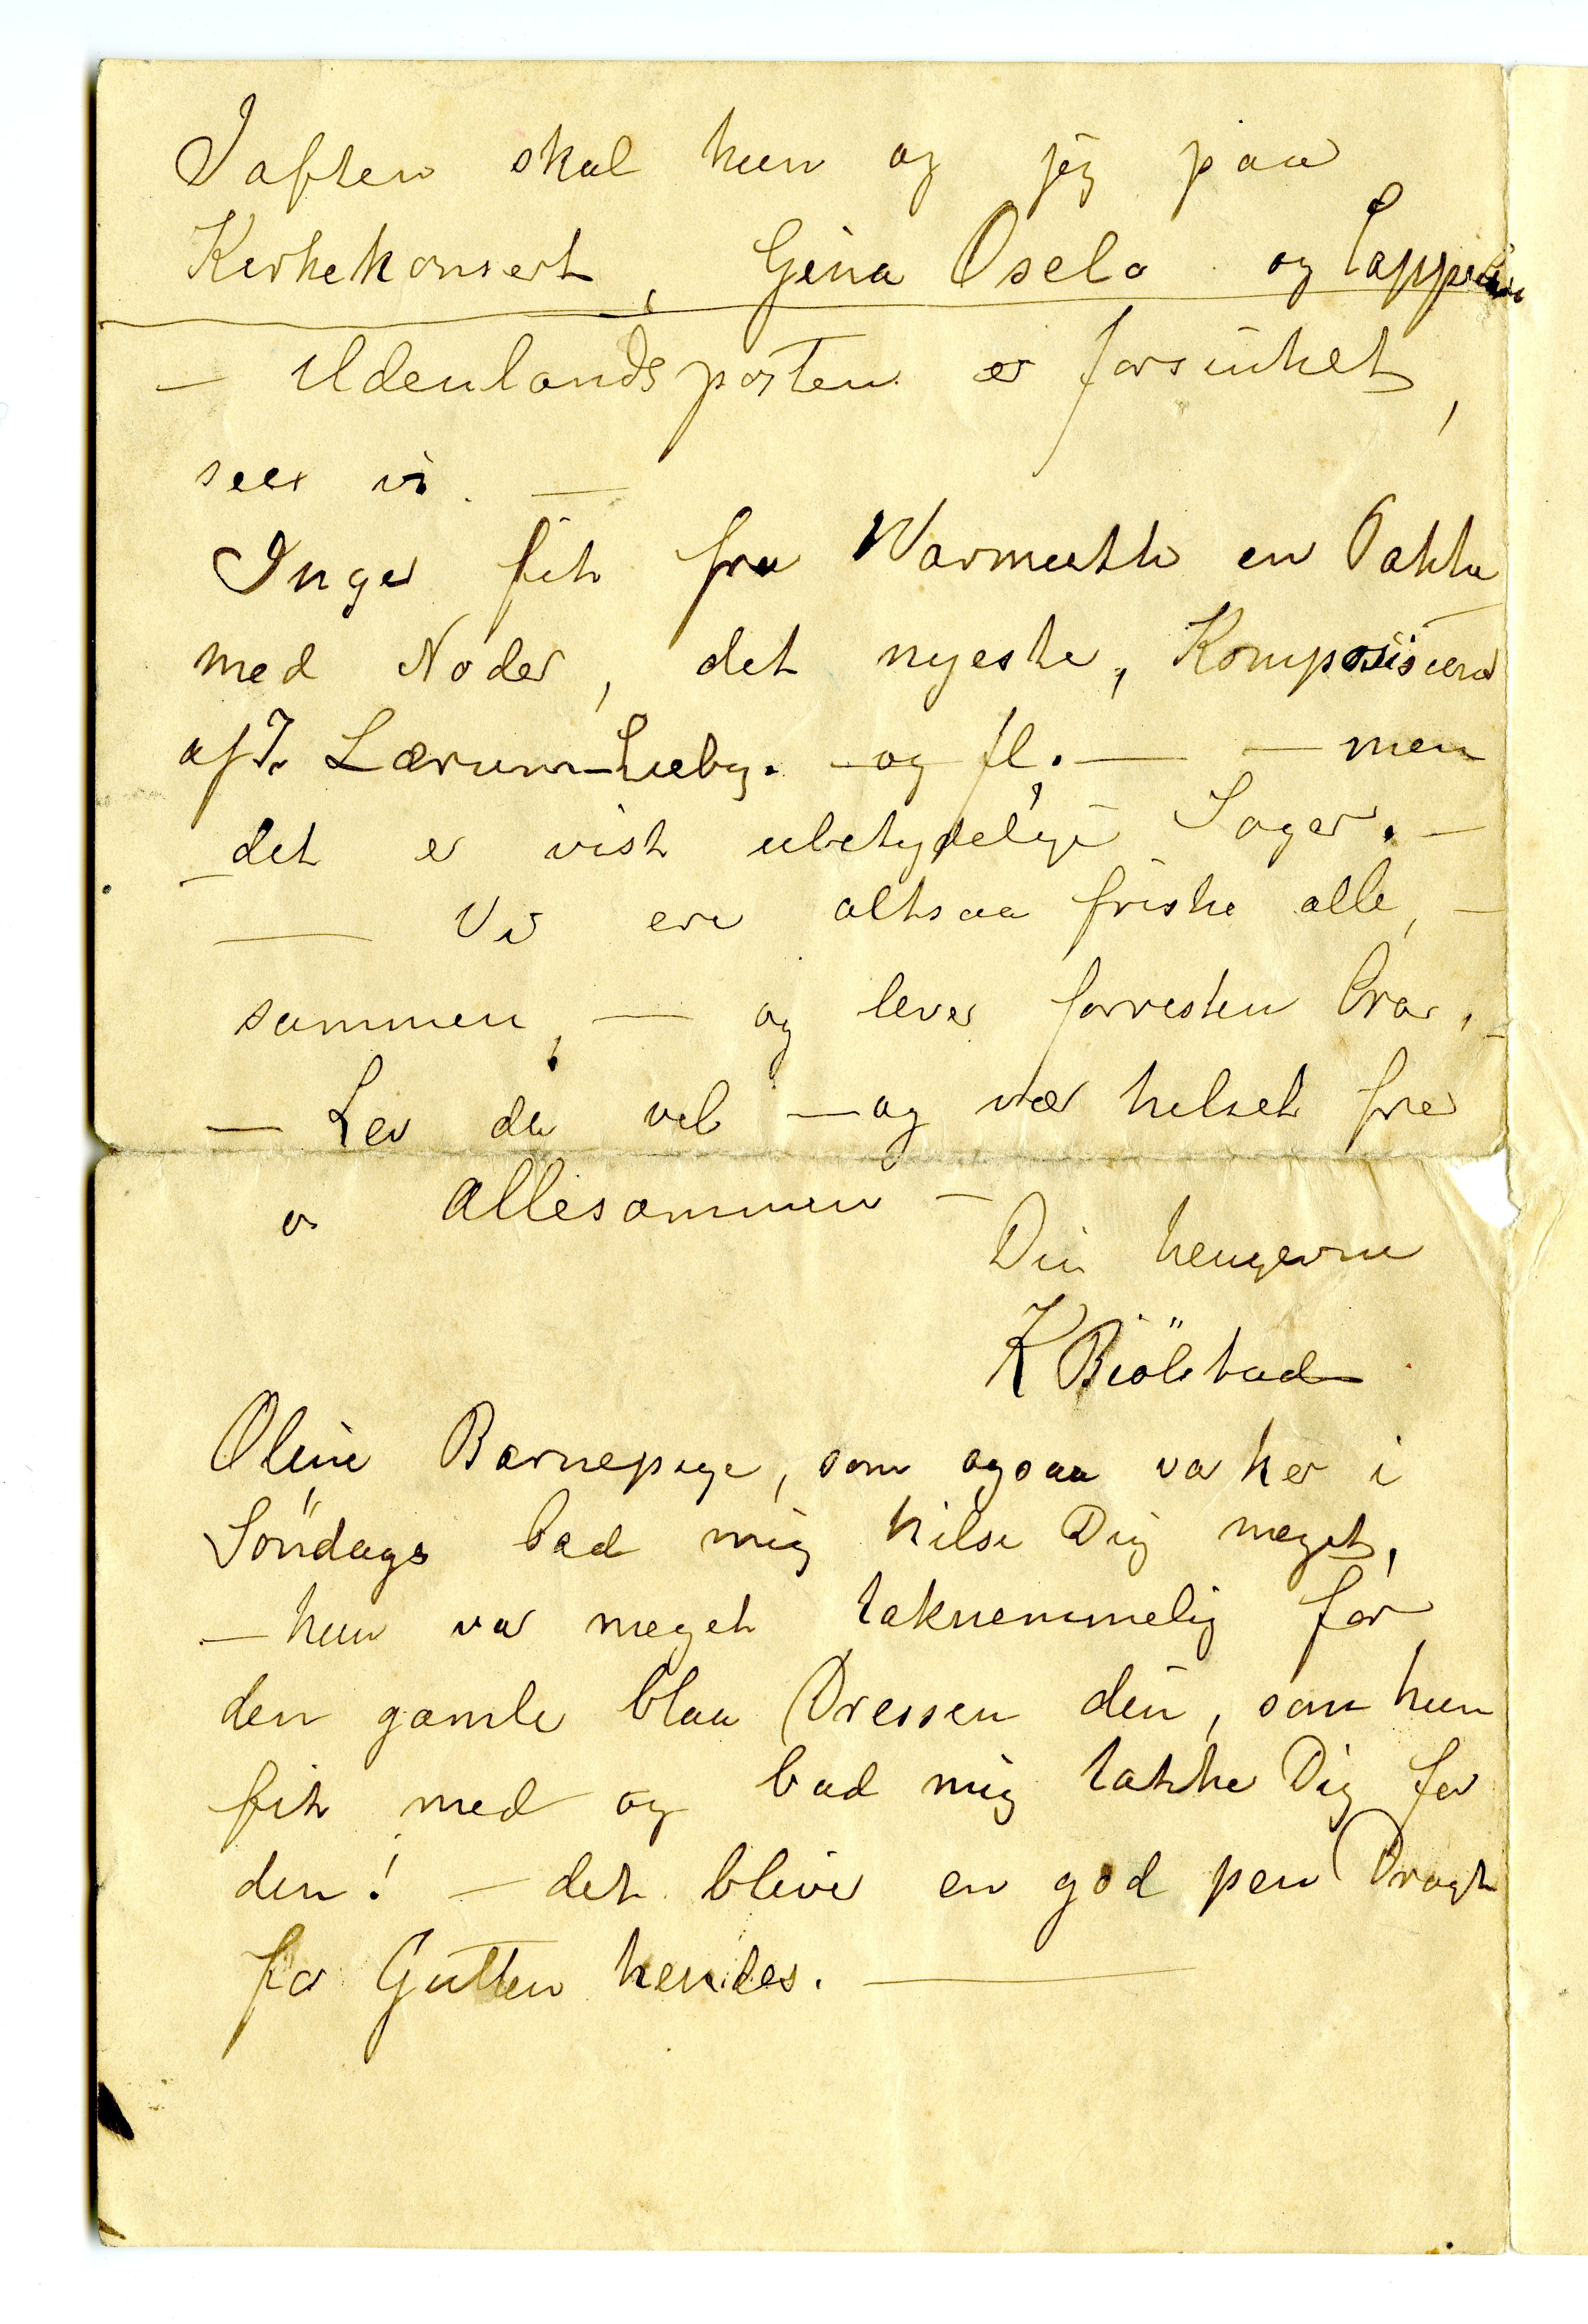 Iaften skal hun og jeg paa
Kirkekonsert, Gina Oselo og
— Udenlandsposten er forsinket,
seer vi. —
Inger fik fra Warmuth en Pakke
med Noder, det nyeste,
af I. Lærum-Lieby. — og fl. — — men
det er vist ubetydelige Sager. —
— Vi ere altsaa friske alle, —
sammen, — og lever forresten bra, —
— Lev da vel — og vær hilset fra
os allesammen —
Din hengivne
K Biölstad
Oline Barnepige, som ogsaa var her i
Söndags bad mig hilse Dig meget,
— hun var meget taknemmelig for
den gamle blaa Dressen din, som hun
fik med og bad mig takke Dig for
den! — det bliver en god pen Dragt
for Gutten hendes. —